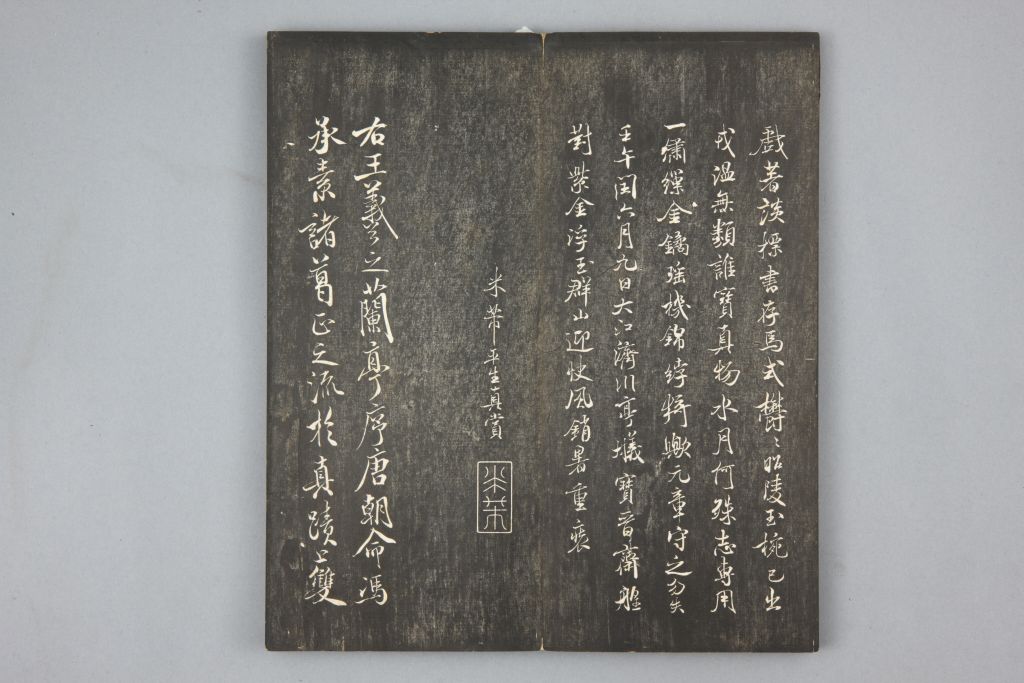 戲著談標書存馬式欝〻昭陵玉椀已出
戎溫無類誰寶真物水月何殊志專用
一繡繅金鐍瑶機錦綍猗歟元章守之勿失
壬午閏六月九日大江濟川亭艤寶晉齋艎
對紫金浮玉群山迎快風銷暑重裝
米芾平生真賞
米芾
右王羲之蘭亭序唐朝命馮
承素諸葛正之流於真蹟上雙